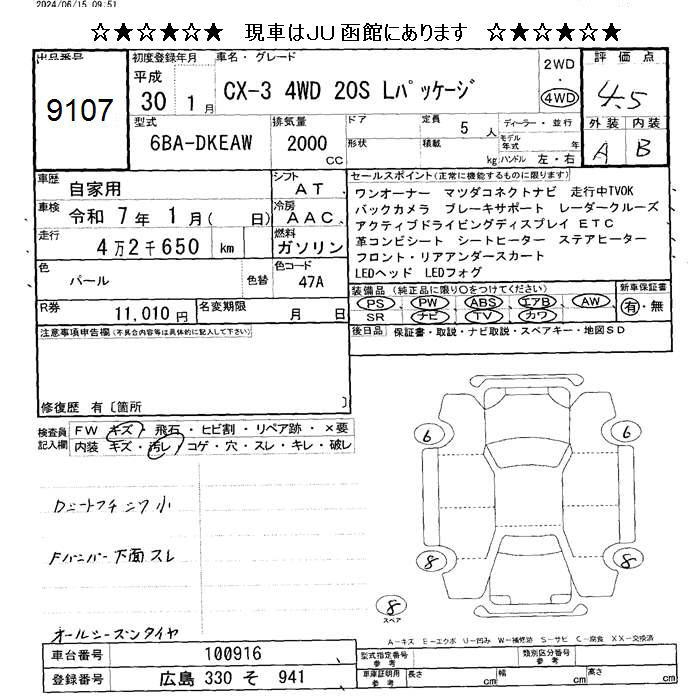 2024/06/15 09:51
☆★☆★☆★ 現車はJU函館にあります ☆★☆★☆★
出品番号 初度登録年月 車名・グレード 2WD・4WD 評価点
9107 平成 30 1月 CX-3 4WD 20S Lパッケージ 4.5
型式 排気量 ドア 定員 5人 ディーラー・並行 外装 内装
6BA-DKEAW 2000 CC 形状 積載 kg モデル年式 年 ハンドル 左・右 A B
車歴 自家用 シフト AT セールスポイント(正常に機能するものに限ります)
車検 令和 7年 1月( 日) 冷房 AAC
走行 4万2千650 km 燃料 ガソリン
ワンオーナー マツダコネクトナビ 走行中TVOK
バックカメラ ブレーキサポート レーダークルーズ
アクティブドライビングディスプレイ ETC
革コンビシート シートヒーター ステアヒーター
フロント・リアアンダースカート
LEDヘッド LEDフォグ
色 パール 色替 色コード 47A
装備品(純正品に限り○をつけてください) 新車保証書
PS PW ABS エアB AW 有・無
SR ナビ TV カワ
R券 11,010円 名変期限 月 日
後日品 保証書・取説・ナビ取説・スペアキー・地図SD
注意事項申告欄(不具合内容等は具体的に記入して下さい)
修復歴 有〔箇所 〕
検査員記入欄 FW キズ・飛石・ヒビ割・リペア跡・×要
内装 キズ・汚レ・コゲ・穴・スレ・キレ・破レ
6 6
8 8
8
スペア
Fバンパー下面スレ
オールシーズンタイヤ
A-キズ E-エクボ U-凹み W-補修跡 S-サビ C-腐食 XX-交換済
車台番号 100916
登録番号 広島 330 そ 941
型式指定番号 参考 類別区分番号 参考
車庫証明用 参考 長さ cm 幅 cm 高さ cm